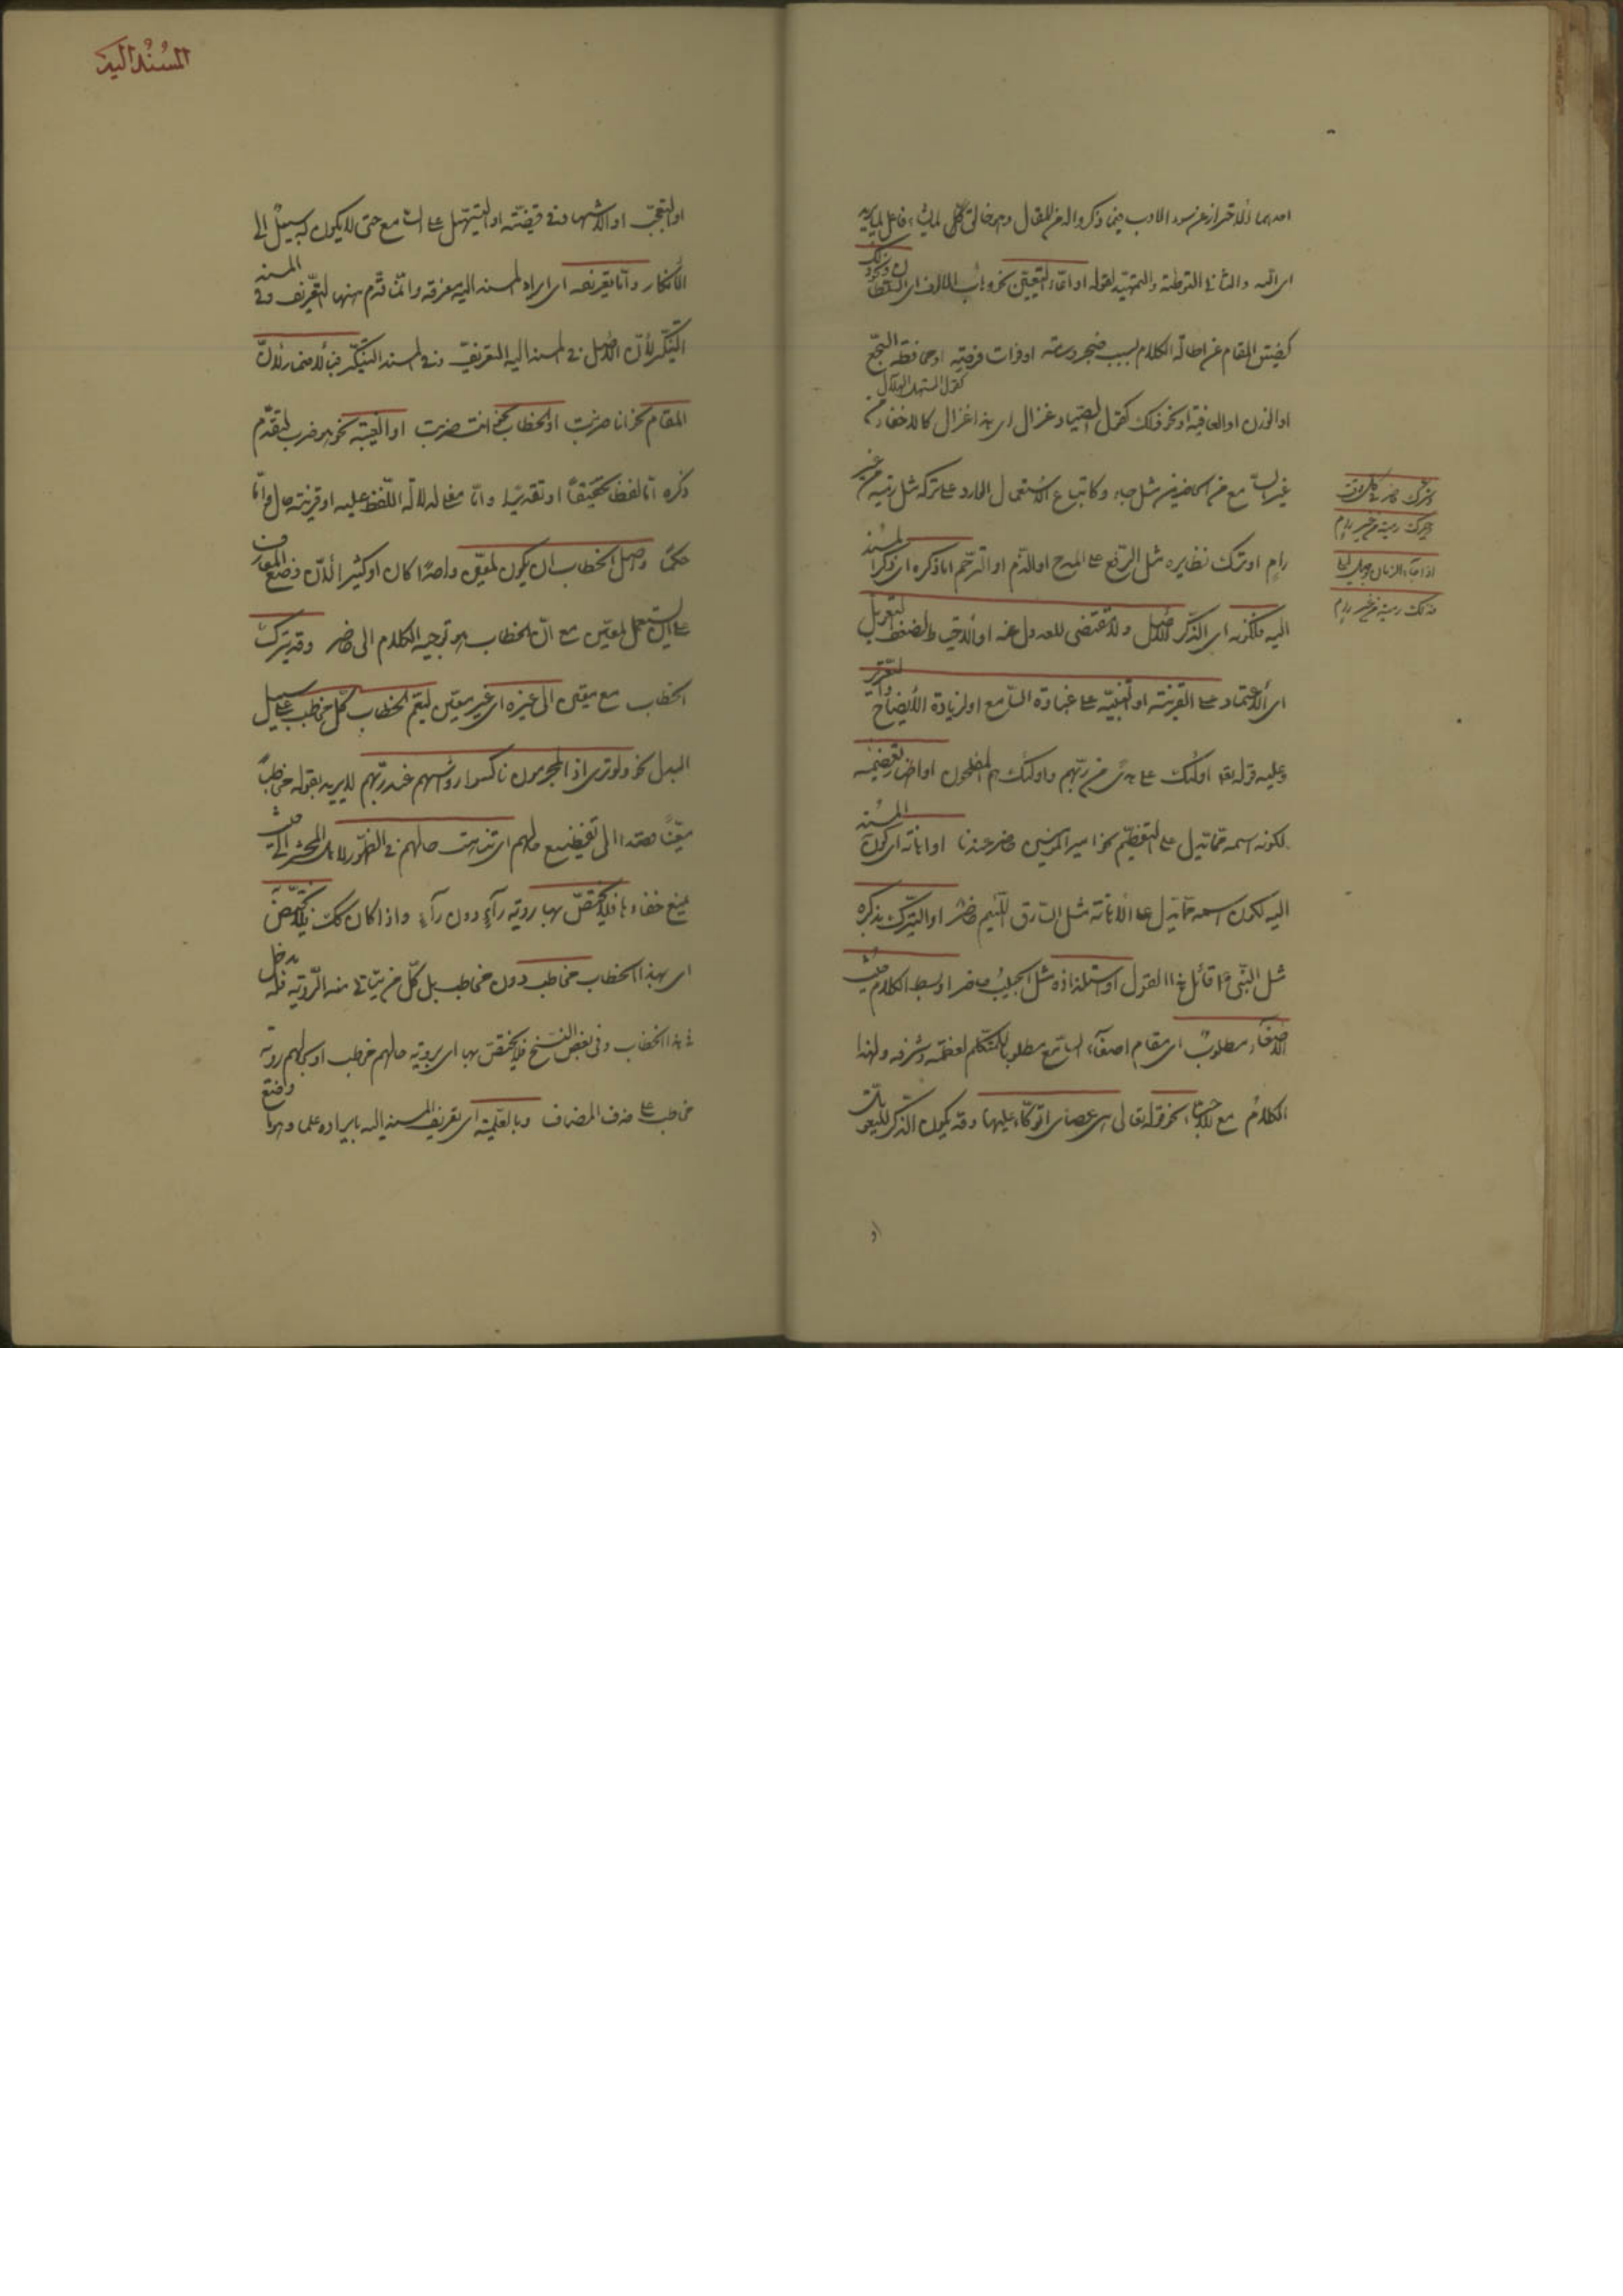 احدهما الاحتراز عن سوء الادب فيما ذكروا له من المثال وهو خالق كل لما يشاء فاعل لما يريد
اى الله والثانى التوطئة والتمهيد لقوله او ادعاء التعين نحو وهاب الالوف اى السلطان ونحو ذلك
كضيق المقام عن اطالة الكلام بسبب ضجر وسامة او فوات فرصة او محافظة السجع
او الوزن او القافية او نحو ذلك كقول الصياد غزال اى هذا غزال كالاخفاء من
كقول المستهل الهلال
غير السامع من الحاضرين مثل جاء وكاتباع الاستعمال الوارد على تركه مثل رمية من غير
رام او ترك نظايره مثل الرفع على المدح او الذم او الترحم اما ذكره اى ذكر المسند
اليه فلكونه اى الذكر الاصل ولا مقتضى للعدول عنه او للاحتياط لضعف التعويل
اى الاعتماد على القرينة او للتنبيه على غباوة السامع او لزيادة الايضاح والتقرير
وعليه قوله تعالى اولئك على هدى من ربهم واولئك هم المفلحون او اظهار تعظيمه
لكونه اسمه مما تدل على التعظيم نحو امير المؤمنين حاضر عندنا او اهانته اى كون المسند
اليه لكون اسمه مما تدل على الاهانة مثل السارق اللئيم حاضر او التبرك بذكره
مثل النبى قائل هذا القول او استلذاذه مثل الحبيب حاضر او بسط الكلام حيث
الاصغاء مطلوب اى مقام اصغاء السامع مطلوب للمتكلم لعظمته وشرفه ولهذا
الكلام مع الاحباء نحو قوله تعالى هى عصاى اتوكأ عليها وقد يكون الذكر للتهويل
رمية من غير رام
رمية من غير رام
المسند اليه
او التعجب او الاشهاد فى قضية او التسجيل على السامع حتى لا يكون له سبيل الى
الانكار واما تعريفه اى ايراد المسند اليه معرفة وانما قدم ههنا التعريف وفى المسند
التنكير لان الاصل فى المسند اليه التعريف وفى المسند التنكير فبالاضمار لان
المقام نحو انا ضربت او الخطاب نحو انت ضربت او الغيبة نحو هو ضرب لتقدم
ذكره اما لفظا تحقيقا او تقديرا واما معنى لدلالة اللفظ عليه او قرينة حال واما
حكما واصل الخطاب ان يكون لمعين واحدا كان او كثيرا لان وضع المعارف
على ان يستعمل لمعين مع ان الخطاب هو توجيه الكلام الى حاضر وقد يترك
الخطاب مع معين الى غيره اى غير معين ليعم الخطاب كل مخاطب على سبيل
البدل نحو ولو ترى اذ المجرمون ناكسوا رؤسهم عند ربهم لا يريد بقوله مخاطبا
معينا قصدا الى تفظيع حالهم اى تناهت حالهم فى الظهور لاهل المحشر الى حيث
يمتنع خفاءها فلا يختص بها رؤية رآء دون رآء واذا كان كذلك فلا يختص
اى بهذا الخطاب مخاطب دون مخاطب بل كل من يتاتى منه الرؤية فله مدخل
فى هذا الخطاب وفى بعض النسخ فلا يختص بها اى برؤية حالهم مخاطب او بحالهم رؤية
مخاطب على حذف المضاف وبالعلمية اى تعريف المسند اليه بايراده علما وهو ما وضع